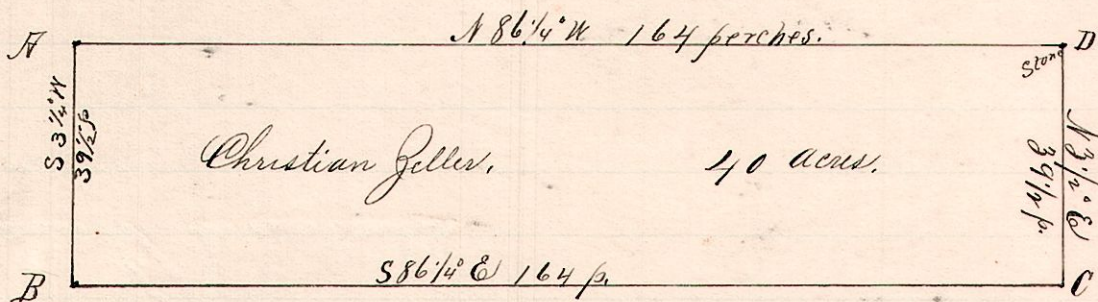 A
N 86 1/4° W 164 perches.
D
Stone
S 3 1/4° W
39 1/2 p
Christian Zeller.
40 acres.
N 3 1/2° E
39 1/2 p.
B
S 86 1/4° E 164 p.
C